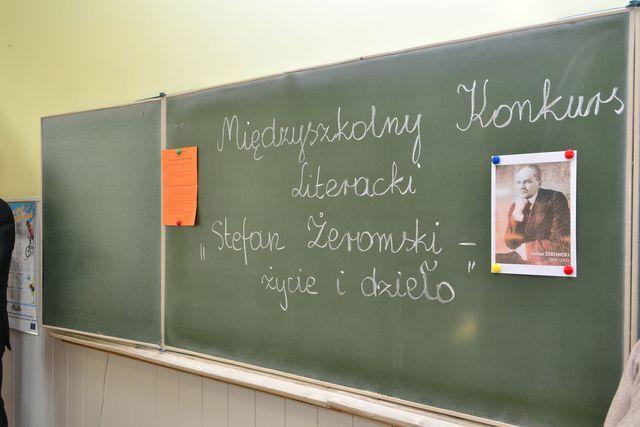 Międzyszkolny Konkurs
Literacki
„Stefan Żeromski –
życie i dzieło”
Stefan ŻEROMSKI
1864 - 1925